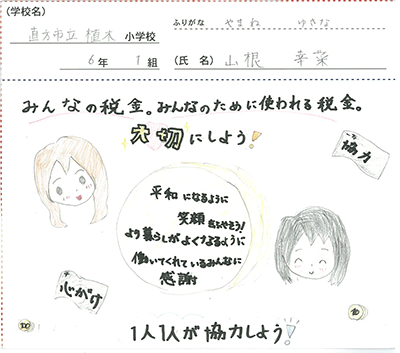 (学校名)
直方市立 植木 小学校
ふりがな やまね ゆきな
6年 1組
(氏名) 山根 幸菜
みんなの税金。みんなのために使われる税金。
大切にしよう!
協力
平和になるように
笑顔
より暮らしがよくなるように
働いてくれているみんなに
感謝
心がけ
100
10
1人1人が協力しよう!